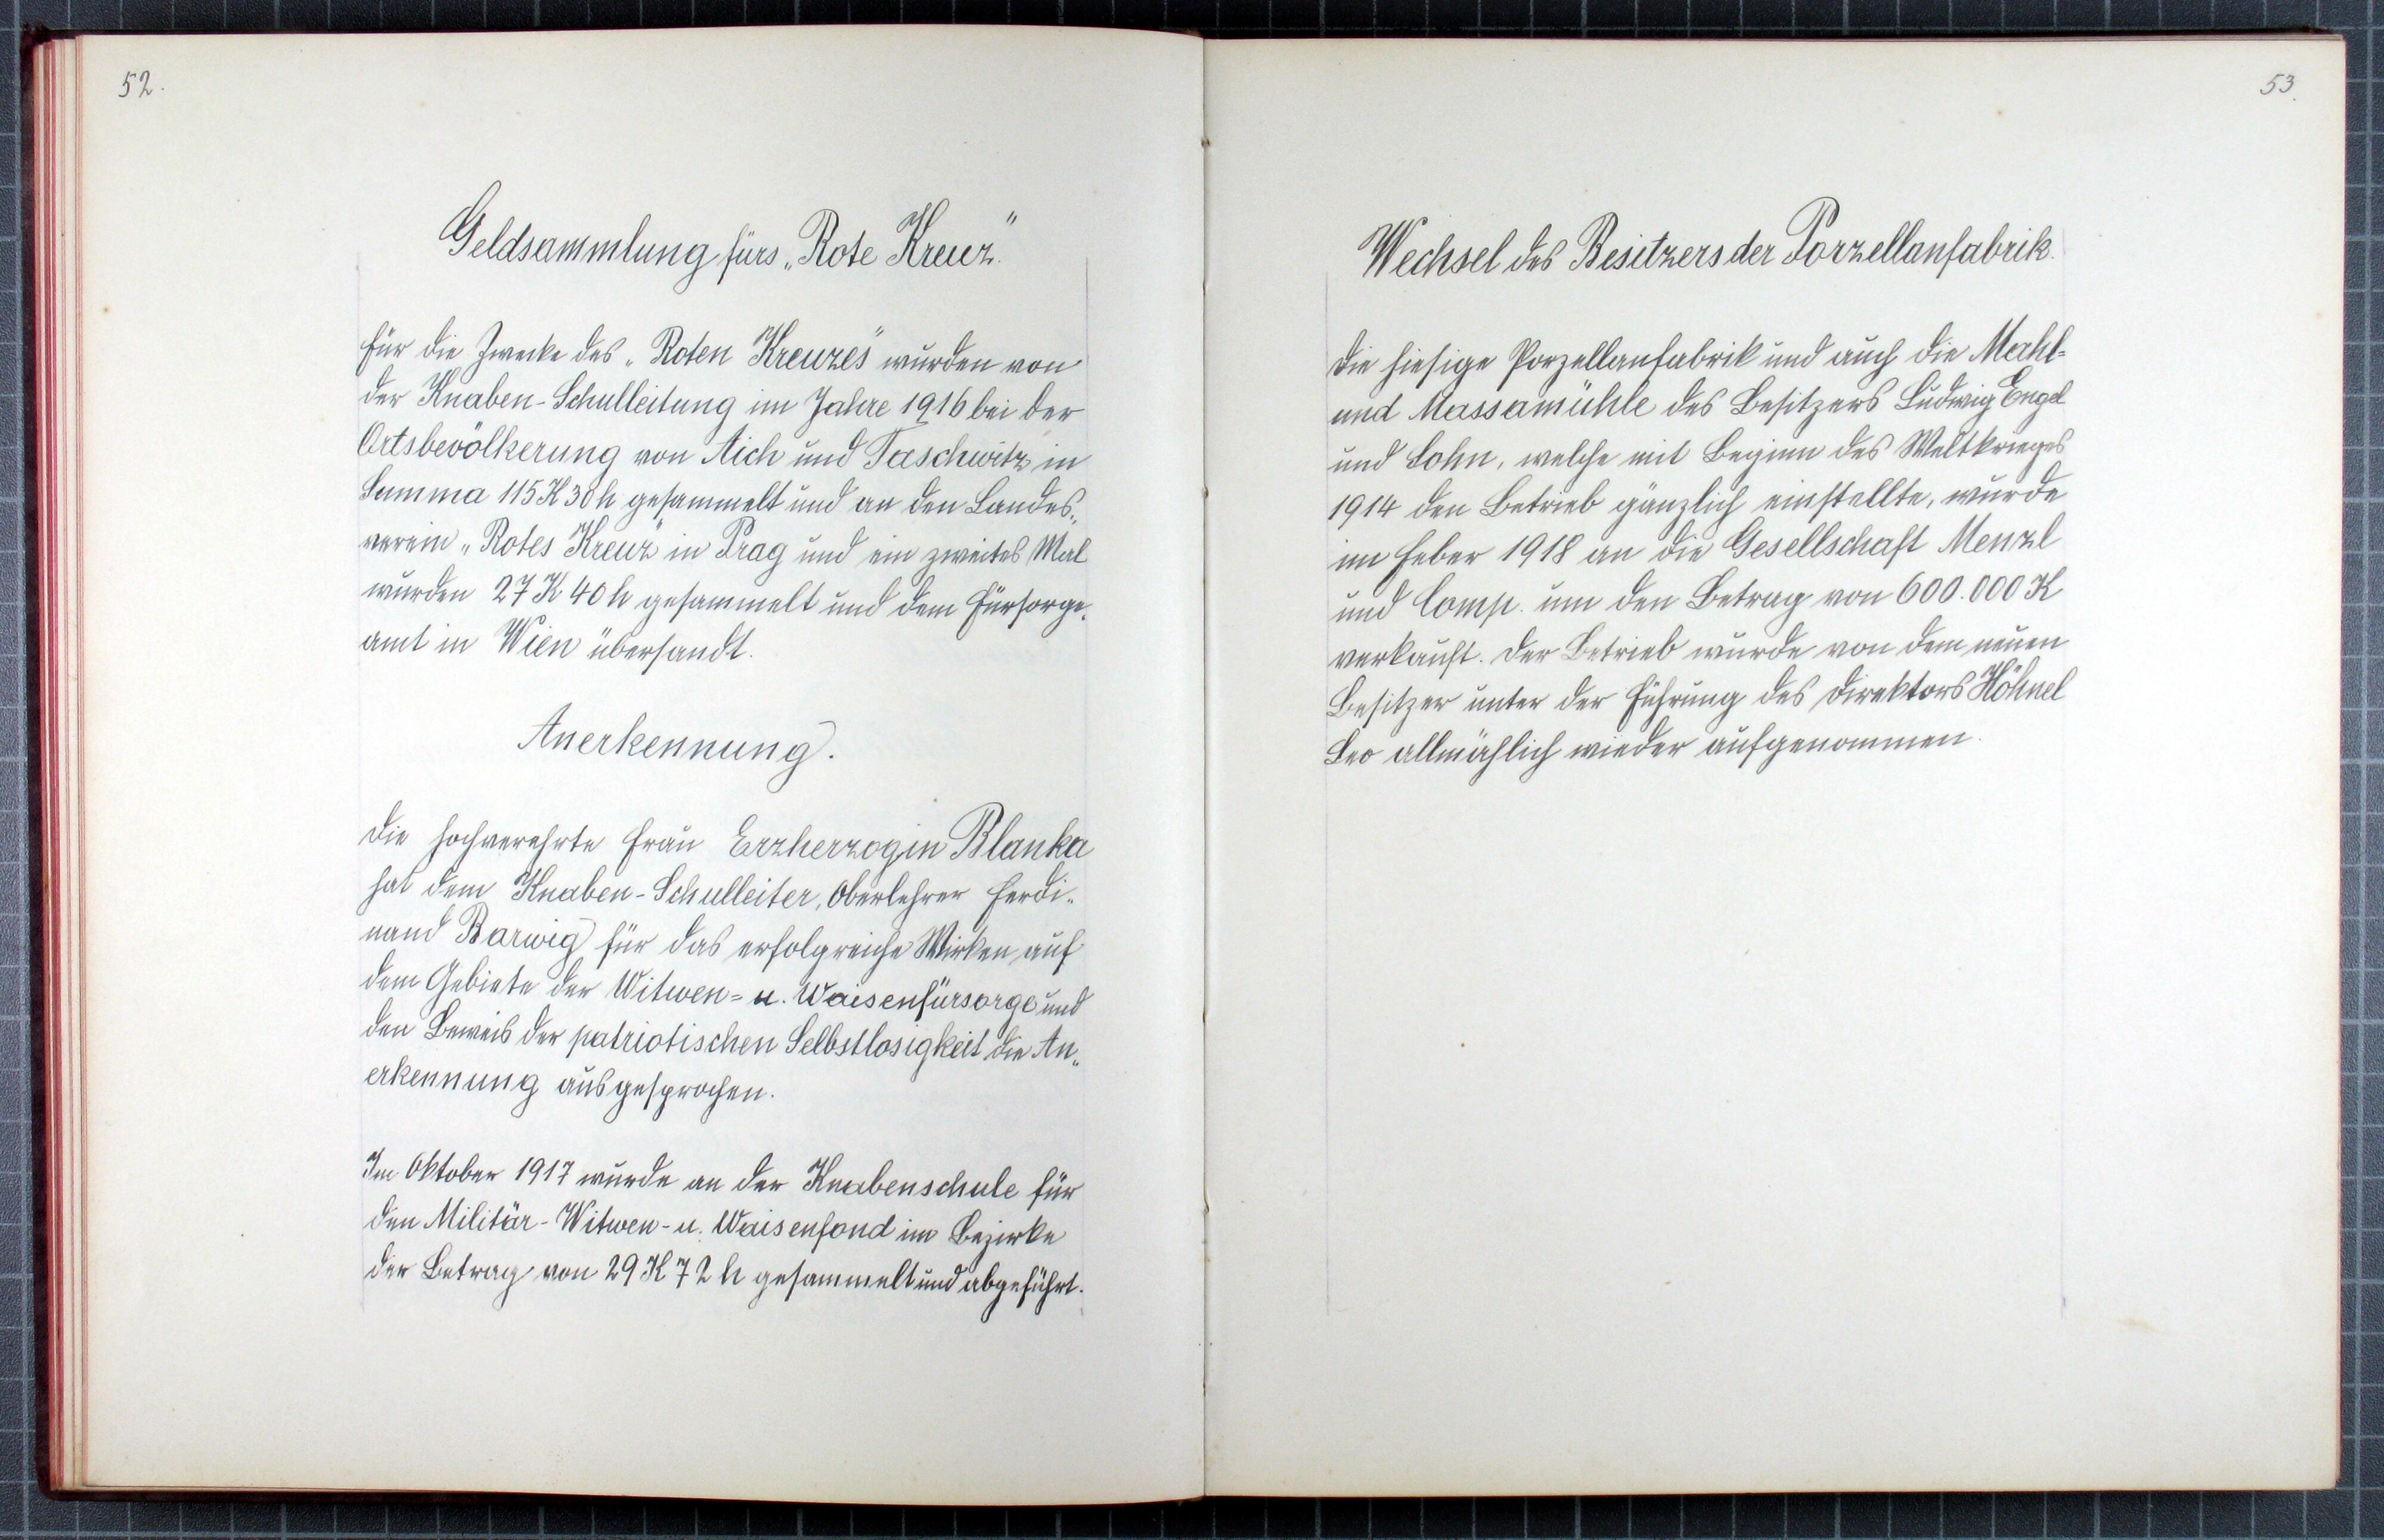 52.
Geldsammlung fürs „Rote Kreuz."
Für die Zwecke des „Roten Kreuzes" wurden von
der Knaben-Schulleitung im Jahre 1916 bei der
Ortsbevölkerung von Aich und Taschwitz in
Summa 115 K 30 h gesammelt und an den Landes„
verein „Rotes Kreuz" in Prag und ein zweites Mal
wurden 27 K 40 h gesammelt und dem Fürsorge„
amt in Wien übersandt.
Anerkennung.
Die hochverehrte Frau Erzherzogin Blanka
hat dem Knaben-Schulleiter, Oberlehrer Ferdi„
nand Barwig für das erfolgreiche Wirken auf
dem Gebiete der Witwen= u. Waisenfürsorge und
den Beweis der patriotischen Selbstlosigkeit die An„
erkennung ausgesprochen.
Im Oktober 1917 wurde an der Knabenschule für
den Militär-Witwen- u. Waisenfond im Bezirke
der Betrag von 29 K 72 h gesammelt und abgeführt.
53.
Wechsel des Besitzers der Porzellanfabrik.
Die hiesige Porzellanfabrik und auch die Mahl=
und Massamühle des Besitzers Ludwig Engel
und Sohn, welche mit Beginn des Weltkrieges
1914 den Betrieb gänzlich einstellte, wurde
im Feber 1918 an die Gesellschaft Menzl
und Comp. um den Betrag von 600.000 K
verkauft. Der Betrieb wurde von dem neuen
Besitzer unter der Führung des Direktors Höhnel
Leo allmählich wieder aufgenommen.